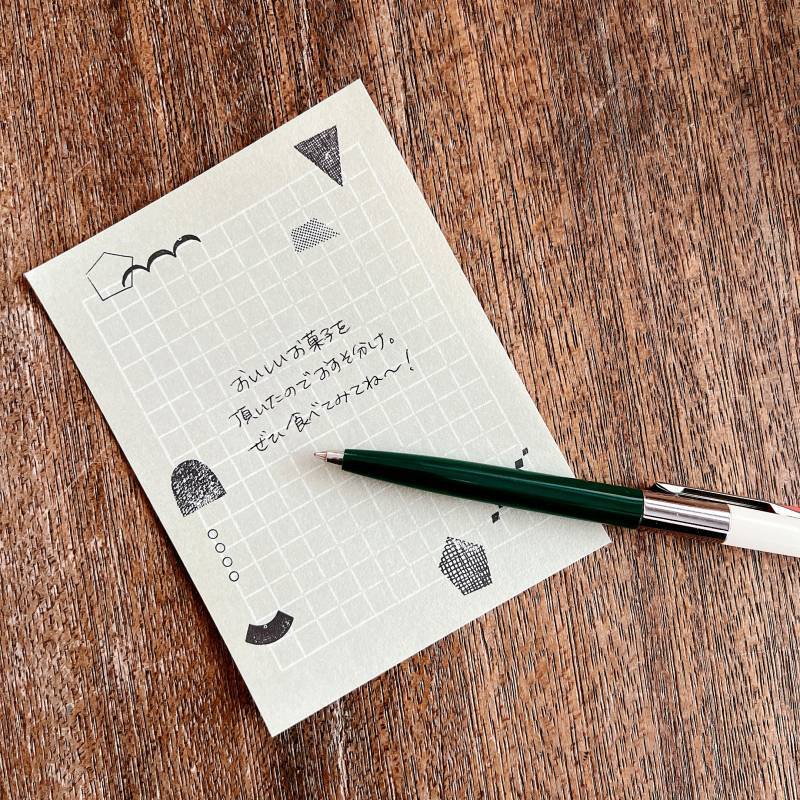 おいしいお菓子を
頂いたのでおすそ分け。
ぜひ食べてみてね〜！